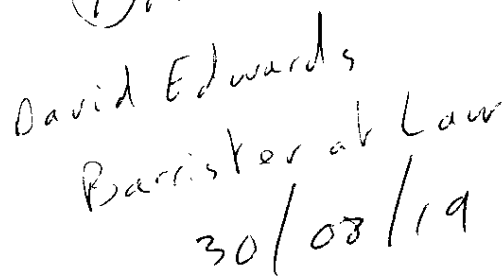 David Edwards
Barrister at Law
30/08/19